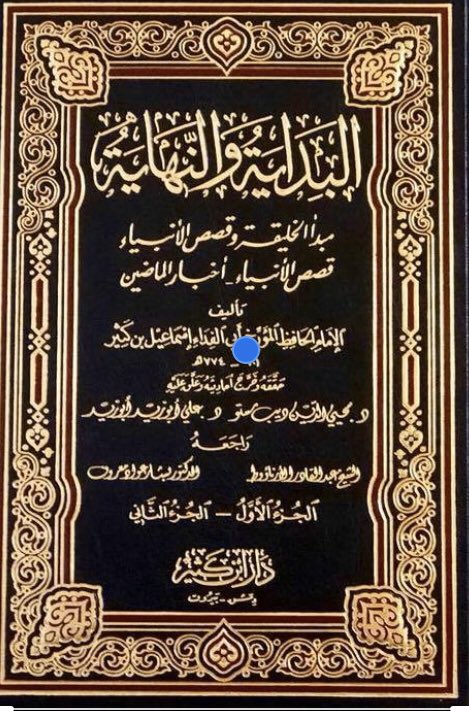 البداية والنهاية
مبدأ الخليقة وقصص الأنبياء
قصص الأنبياء - أخبار الماضين
تأليف
الإمام الحافظ المؤرخ أبي الفداء إسماعيل بن كثير
٧٧٤هـ
حققه وخرج أحاديثه وعلق عليه
د. محيي الدين ديب مستو د. علي أبو زيد أبو زيد
راجعه
الشيخ عبد القادر الأرناؤوط الدكتور بشار عواد معروف
الجزء الأول - الجزء الثاني
دار ابن كثير
دمشق - بيروت